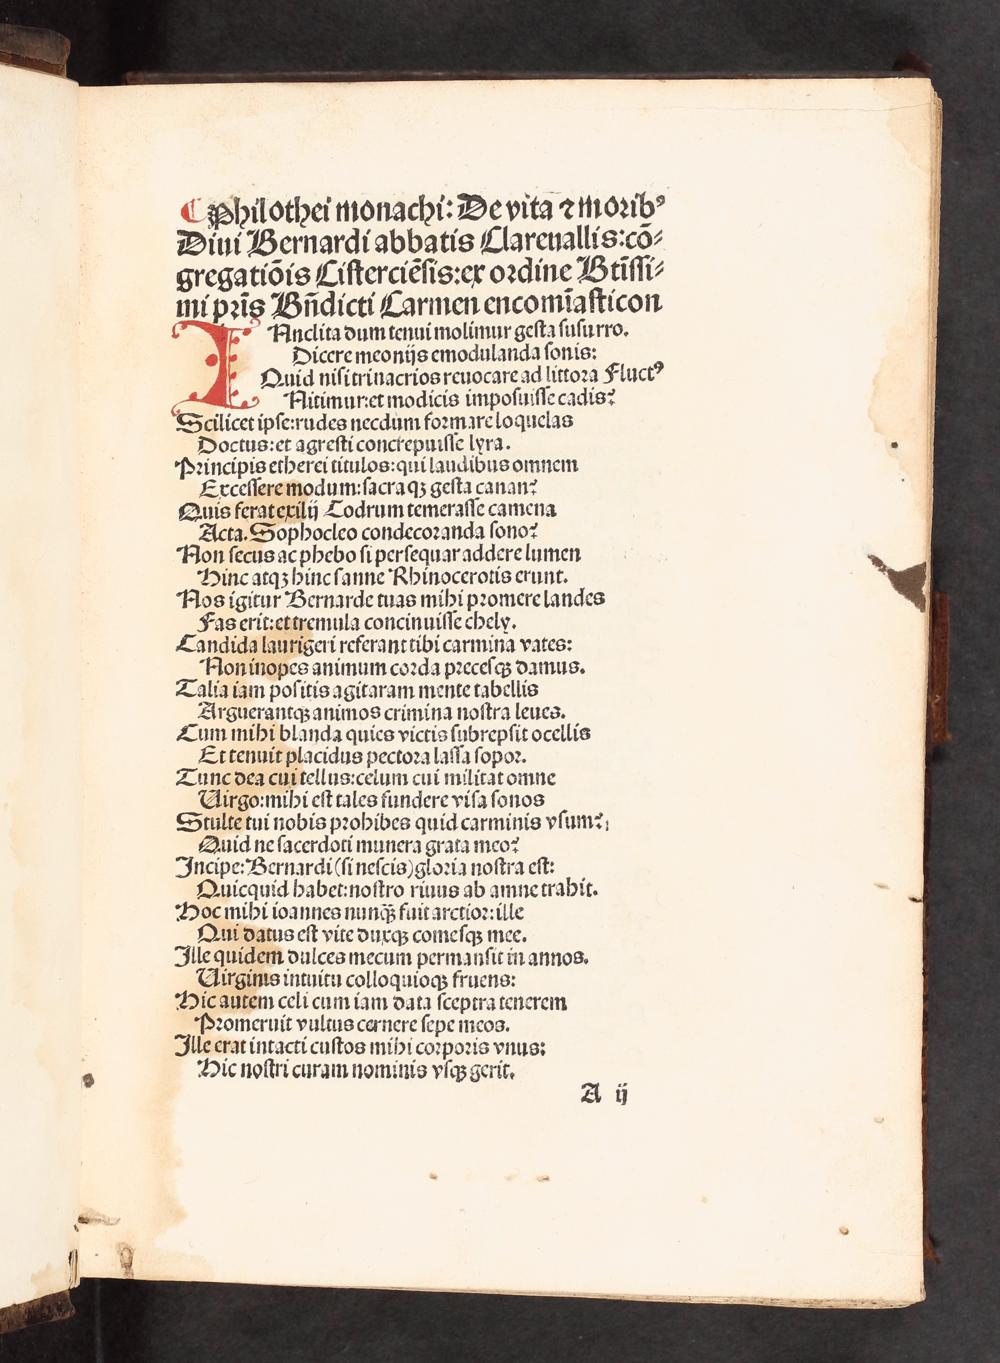 ¶ Philothei monachi: De vita ⁊ moribꝰ
Diui Bernardi abbatis Clareuallis: cō⸗
gregatiōis Cisterciēsis: ex ordine Btīssi⸗
mi pr̄is Bn̄dicti Carmen encomīasticon
INnclita dum tenui molimur gesta susurro.
Dicere meonijs emodulanda sonis:
Quid nisi trinacrios reuocare ad littora Fluctꝰ
Nitimur: et modicis imposuisse cadis?
Scilicet ipse: rudes necdum formare loquelas
Doctus: et agresti concrepuisse lyra.
Principis etherei titulos: qui laudibus omnem
Excessere modum: sacraqꝫ gesta canan?
Quis ferat exilij Codrum temerasse camena
Acta. Sophocleo condecoranda sono?
Non secus ac phebo si persequar addere lumen
Hinc atqꝫ hinc sanne Rhinocerotis erunt.
Nos igitur Bernarde tuas mihi promere landes
Fas erit: et tremula concinuisse chely.
Candida laurigeri referant tibi carmina vates:
Non inopes animum corda precesqꝫ damus.
Talia iam positis agitaram mente tabellis
Arguerantqꝫ animos crimina nostra leues.
Cum mihi blanda quies victis subrepsit ocellis
Et tenuit placidus pectora lassa sopor.
Tunc dea cui tellus: celum cui militat omne
Uirgo: mihi est tales fundere visa sonos
Stulte tui nobis prohibes quid carminis vsum?
Quid ne sacerdoti munera grata meo?
Incipe: Bernardi (si nescis) gloria nostra est:
Quicquid habet: nostro riuus ab amne trahit.
Hoc mihi ioannes nunqꝫ̄ fuit arctior: ille
Qui datus est vite duxqꝫ comesqꝫ mee.
Ille quidem dulces mecum permansit in annos.
Uirginis intuitu colloquioqꝫ fruens:
Hic autem celi cum iam data sceptra tenerem
Promeruit vultus cernere sepe meos.
Ille erat intacti custos mihi corporis vnus:
Hic nostri curam nominis vsqꝫ gerit.
A ij